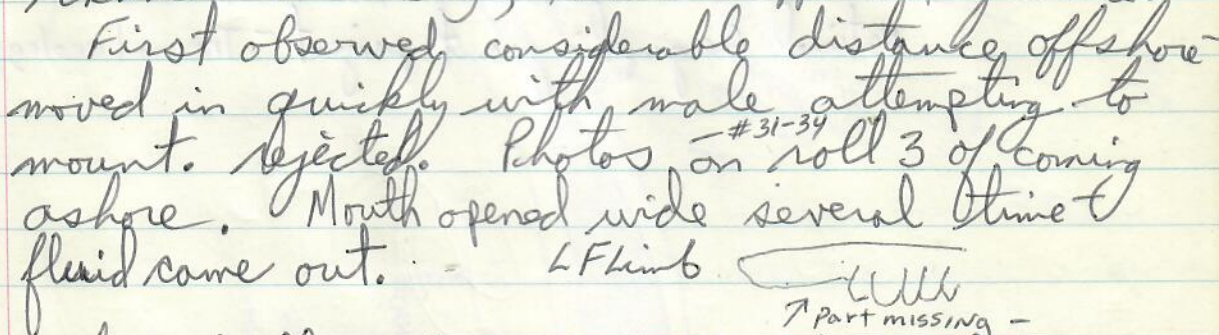 First observed considerable distance offshore
moved in quickly with male attempting to
mount. rejected. Photos – #31-34 on roll 3 of coming
ashore. Mouth opened wide several time +
fluid came out. LF Limb
↗ part missing –